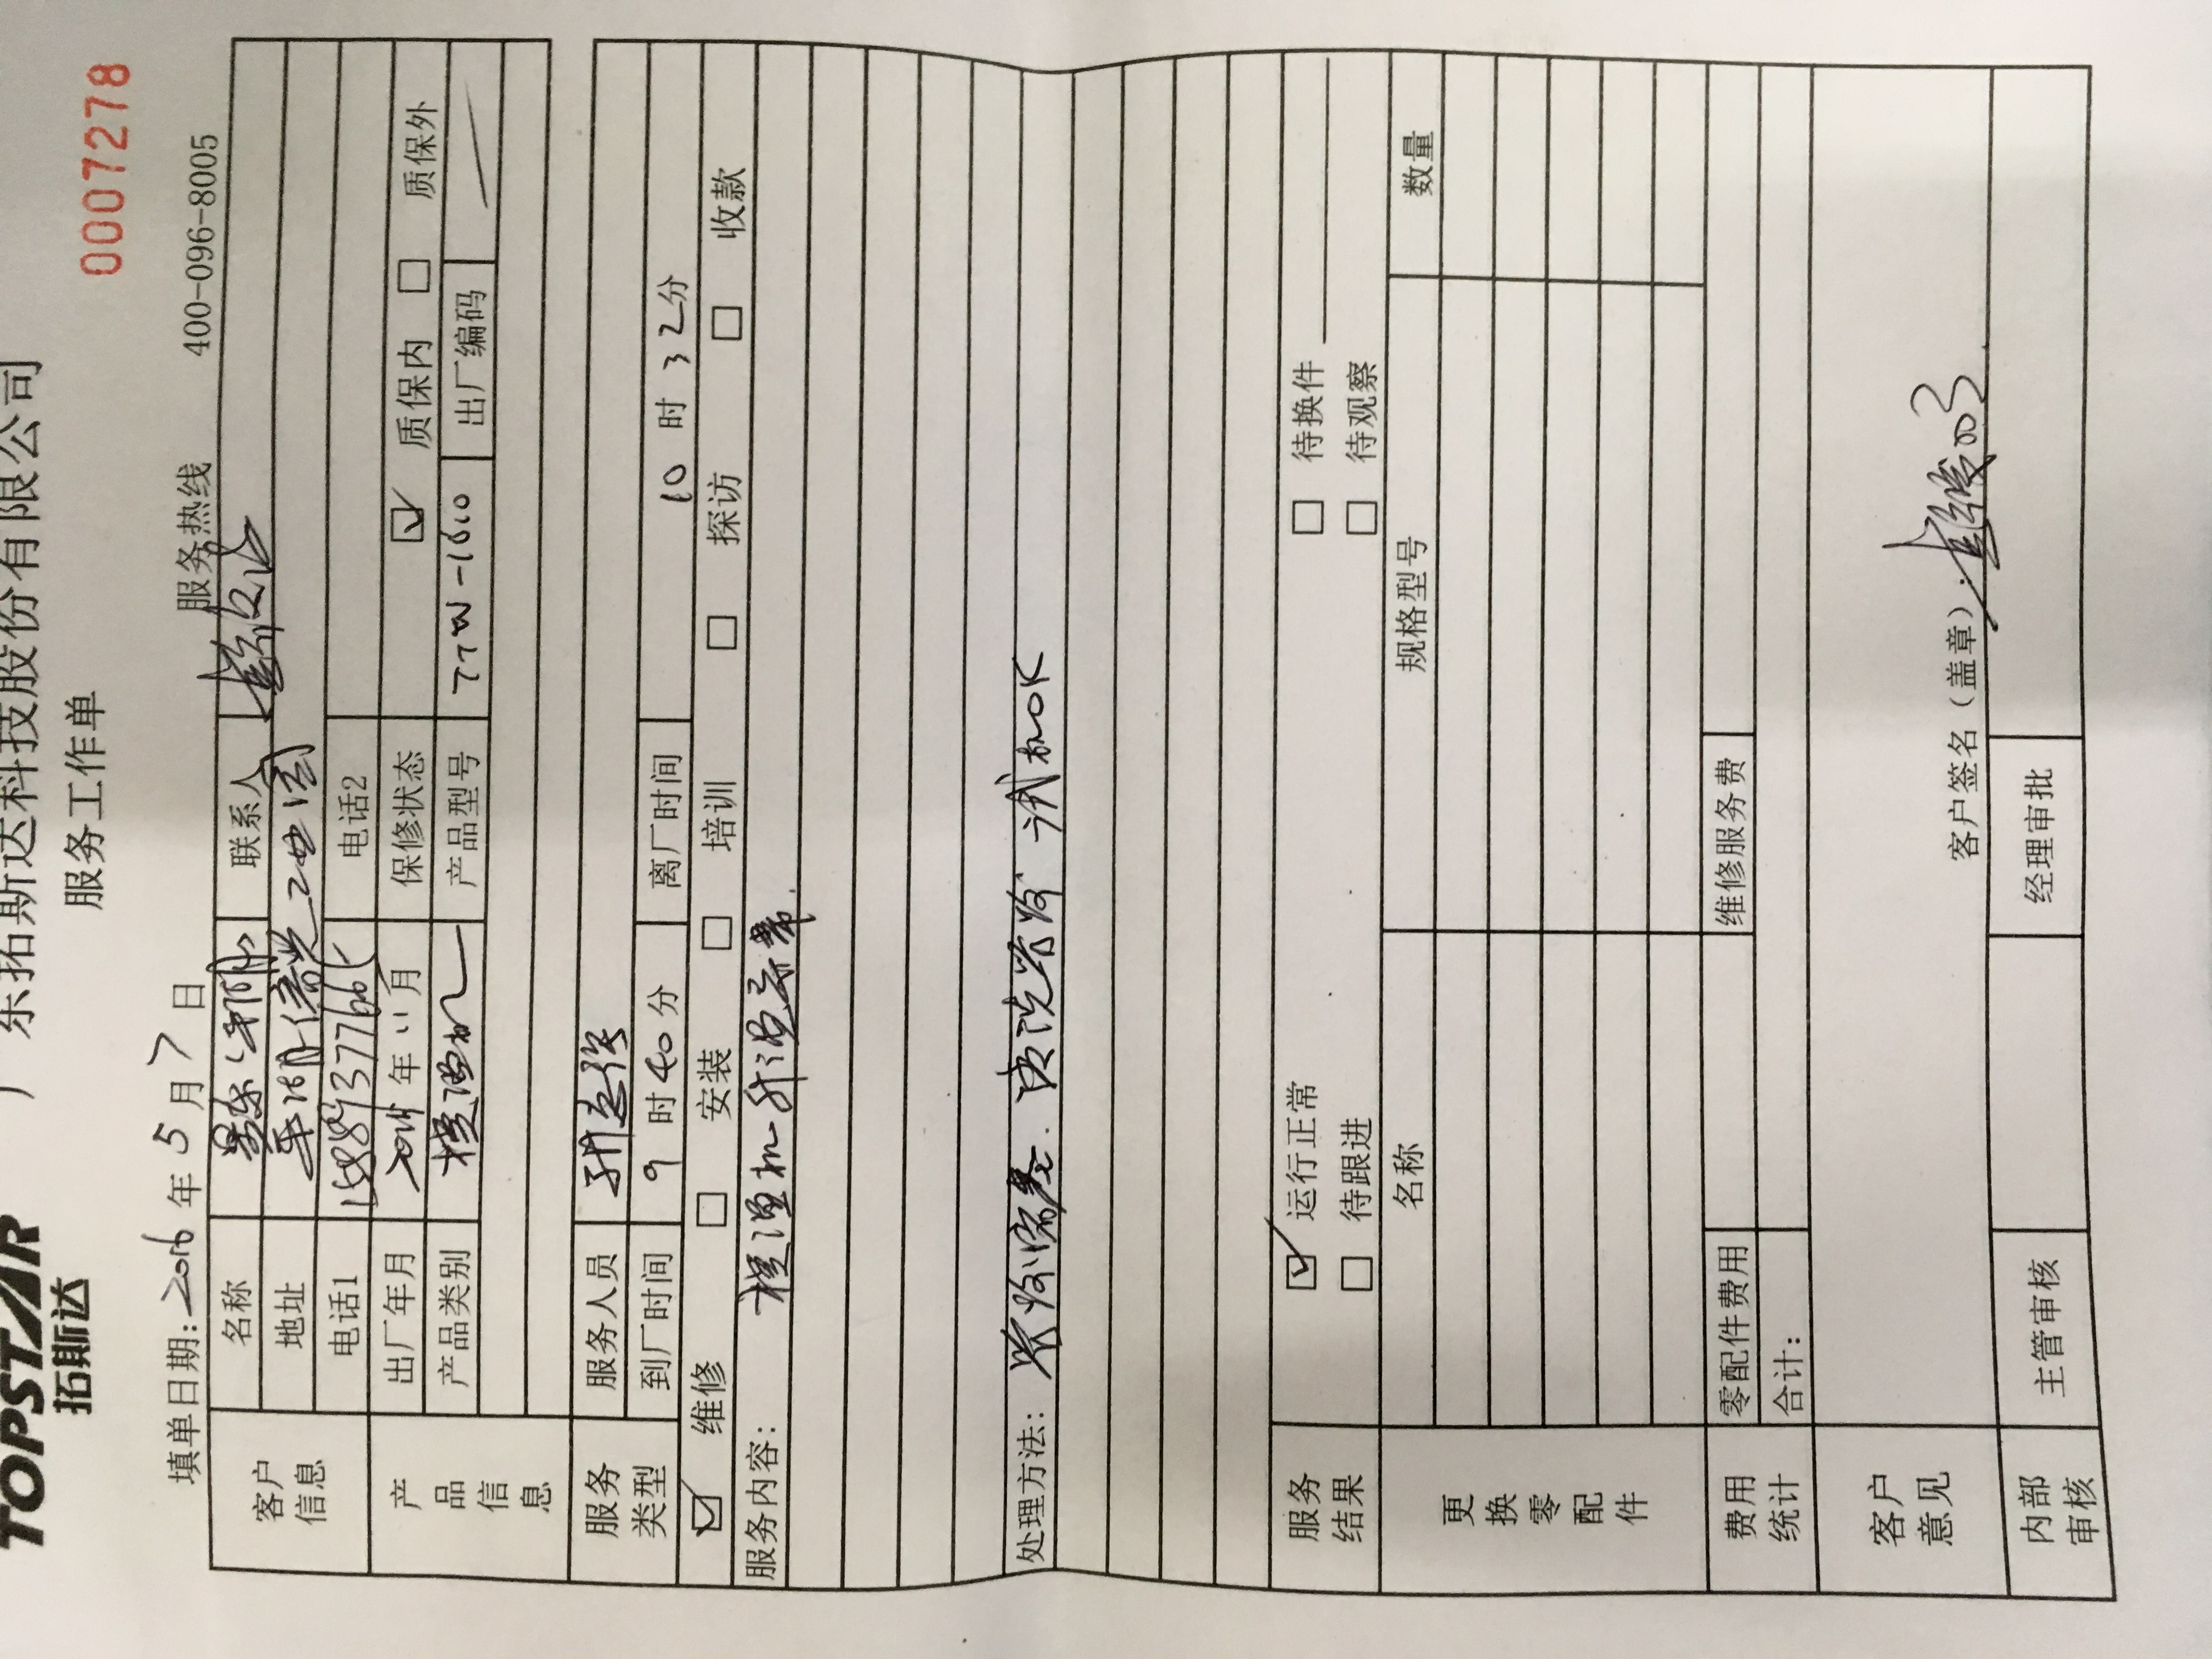 TOPSTAR 广东拓斯达科技股份有限公司
拓斯达 服务工作单 0007278
填单日期:2016年5月7日 服务热线 400-096-8005
客户信息 名称 联系人
地址
电话1 电话2
产品信息 出厂年月 年11月 保修状态 ☑ 质保内 □ 质保外
产品类别 模温机 产品型号 TTW-1610 出厂编码
服务类型 服务人员
到厂时间 9时40分 离厂时间 10时32分
☑ 维修 □ 安装 □ 培训 □ 探访 □ 收款
服务内容: 模温机升温异常.
处理方法: 清洗 试机OK
服务结果 ☑ 运行正常 □ 待换件
□ 待跟进 □ 待观察
更换零配件 名称 规格型号 数量
费用统计 零配件费用 维修服务费
合计:
客户意见
客户签名(盖章):
内部审核 主管审核 经理审批